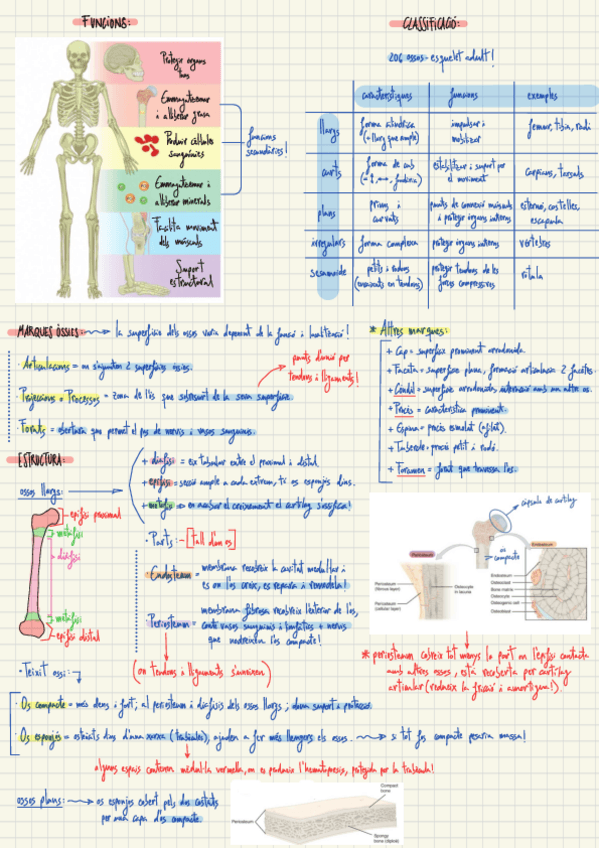 FUNCIONS:
Protegir òrgans
tous
Emmagatzemar
i alliberar grasa
Produir cèl·lules
sanguínies
Emmagatzemar i
alliberar minerals
Facilita moviment
dels músculs
Suport
estructural
funcions
secundàries!
CLASSIFICACIÓ:
206 ossos - esquelet adult!
característiques
funcions
exemples
llargs
forma cilíndrica
(+ llarg que ample)
impulsar i
mobilitzar
femur, tíbia, radi
curts
forma de cub
estabilitzar i suport per
el moviment
carpians, tarsals
plans
prims i
curvats
punts de connexió músculs
i protegir òrgans interns
esternó, costelles,
escàpula
irregulars
forma complexa
protegir òrgans interns
vèrtebres
sesamoide
petits i rodons
(envoltants en tendons)
protegir tendons de les
forces compressives
ròtula
MARQUES ÒSSIES:
la superfície dels ossos varia depenent de la funció i localització!
· Articulacions = on s'ajunten 2 superfícies òssies.
· Projeccions o Processos = zona de l'òs que sobresurt de la seva superfície.
· Forats = obertura que permet el pas de nervis i vasos sanguinis.
punts d'unió per
tendons i lligaments!
* Altres marques:
+ Cap = superfície prominent arrodonida.
+ Faceta = superfície plana, formació articulacions 2 facetes.
+ Còndil = superfície arrodonida, interacció amb un altre os.
+ Procés = característica prominent.
+ Espina = procés esmolat (afilat).
+ Tubercle = procés petit i rodó.
+ Foramen = forat que travessa l'os.
ESTRUCTURA:
ossos llargs:
+ diàfisi = eix tubular entre el proximal i distal.
+ epífisi = secció ample a cada extrem, té os esponjós dins.
+ metàfisi = en acabar el creixement el cartílag s'ossifica!
epífisi proximal
metàfisi
diàfisi
metàfisi
epífisi distal
· Parts: [tall d'un os]
· Endosteum = membrana recobreix la cavitat medul·lar i
és on l'os creix, es repara i remodela!
· Periosteum = membrana fibrosa recobreix l'exterior de l'os,
conté vasos sanguinis i limfàtics + nervis
que nodreixen l'os compacte!
(on tendons i lligaments s'uneixen)
càpsula de cartílag
os
compacte
Periosteum
Periosteum
(fibrous layer)
Periosteum
(cellular layer)
Osteocyte
in lacuna
Endosteum
Endosteum
Osteoclast
Bone matrix
Osteocyte
Osteogenic cell
Osteoblast
* periosteum cobreix tot menys la part on l'epífisi contacta
amb altres ossos, està recoberta per cartílag
articular (redueix la fricció i amortigua!)
· Teixit ossi:
· Os compacte = més dens i fort; al periosteum i diàfisis dels ossos llargs; dóna suport i protecció.
· Os esponjós = espais dins d'una xarxa (trabècules), ajuden a fer més lleugers els ossos.
si tot fos compacte pesaria massa!
alguns espais contenen medul·la vermella, on es produeix l'hematopoesis, protegida per la trabècula!
ossos plans:
os esponjós cobert pels dos costats
per una capa d'os compacte.
Periosteum
Compact
bone
Spongy
bone (diploë)